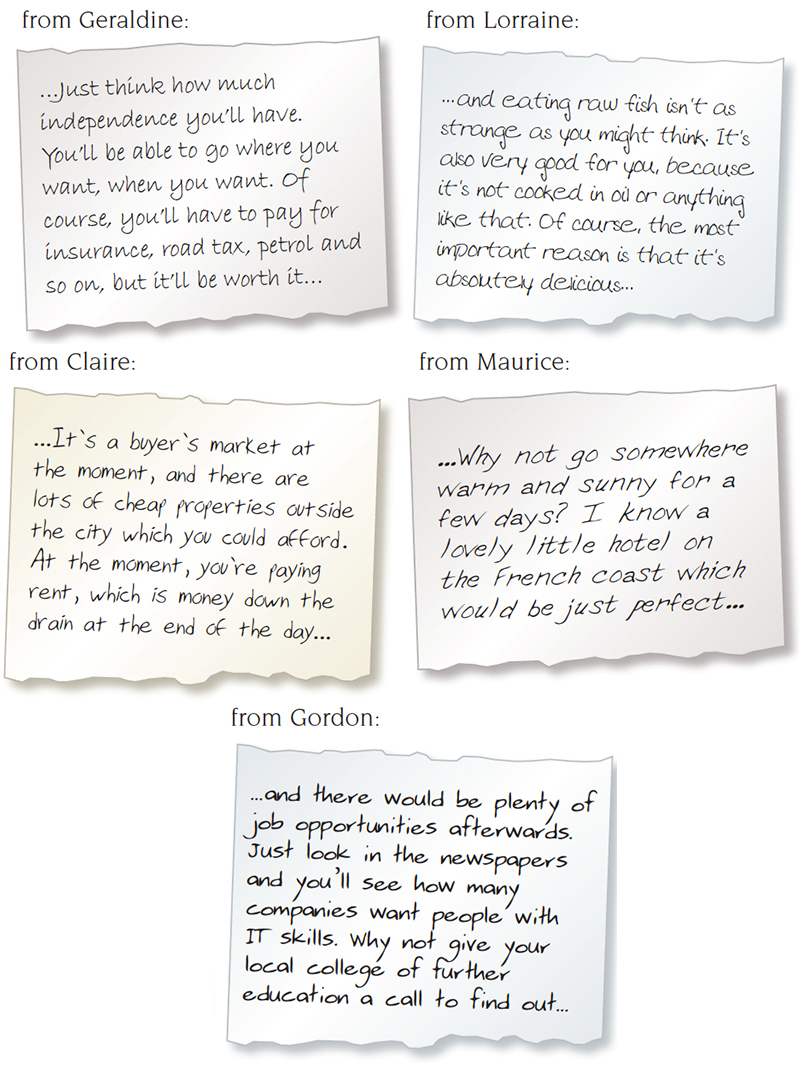 from Geraldine:
...Just think how much
independence you'll have.
You'll be able to go where you
want, when you want. Of
course, you'll have to pay for
insurance, road tax, petrol and
so on, but it'll be worth it...
from Lorraine:
...and eating raw fish isn't as
strange as you might think. It's
also very good for you, because
it's not cooked in oil or anything
like that. Of course, the most
important reason is that it's
absolutely delicious...
from Claire:
...It`s a buyer`s market at
the moment, and there are
lots of cheap properties outside
the city which you could afford.
At the moment, you`re paying
rent, which is money down the
drain at the end of the day...
from Maurice:
...Why not go somewhere
warm and sunny for a
few days? I know a
lovely little hotel on
the French coast which
would be just perfect...
from Gordon:
...and there would be plenty of
job opportunities afterwards.
Just look in the newspapers
and you'll see how many
companies want people with
IT skills. Why not give your
local college of further
education a call to find out...